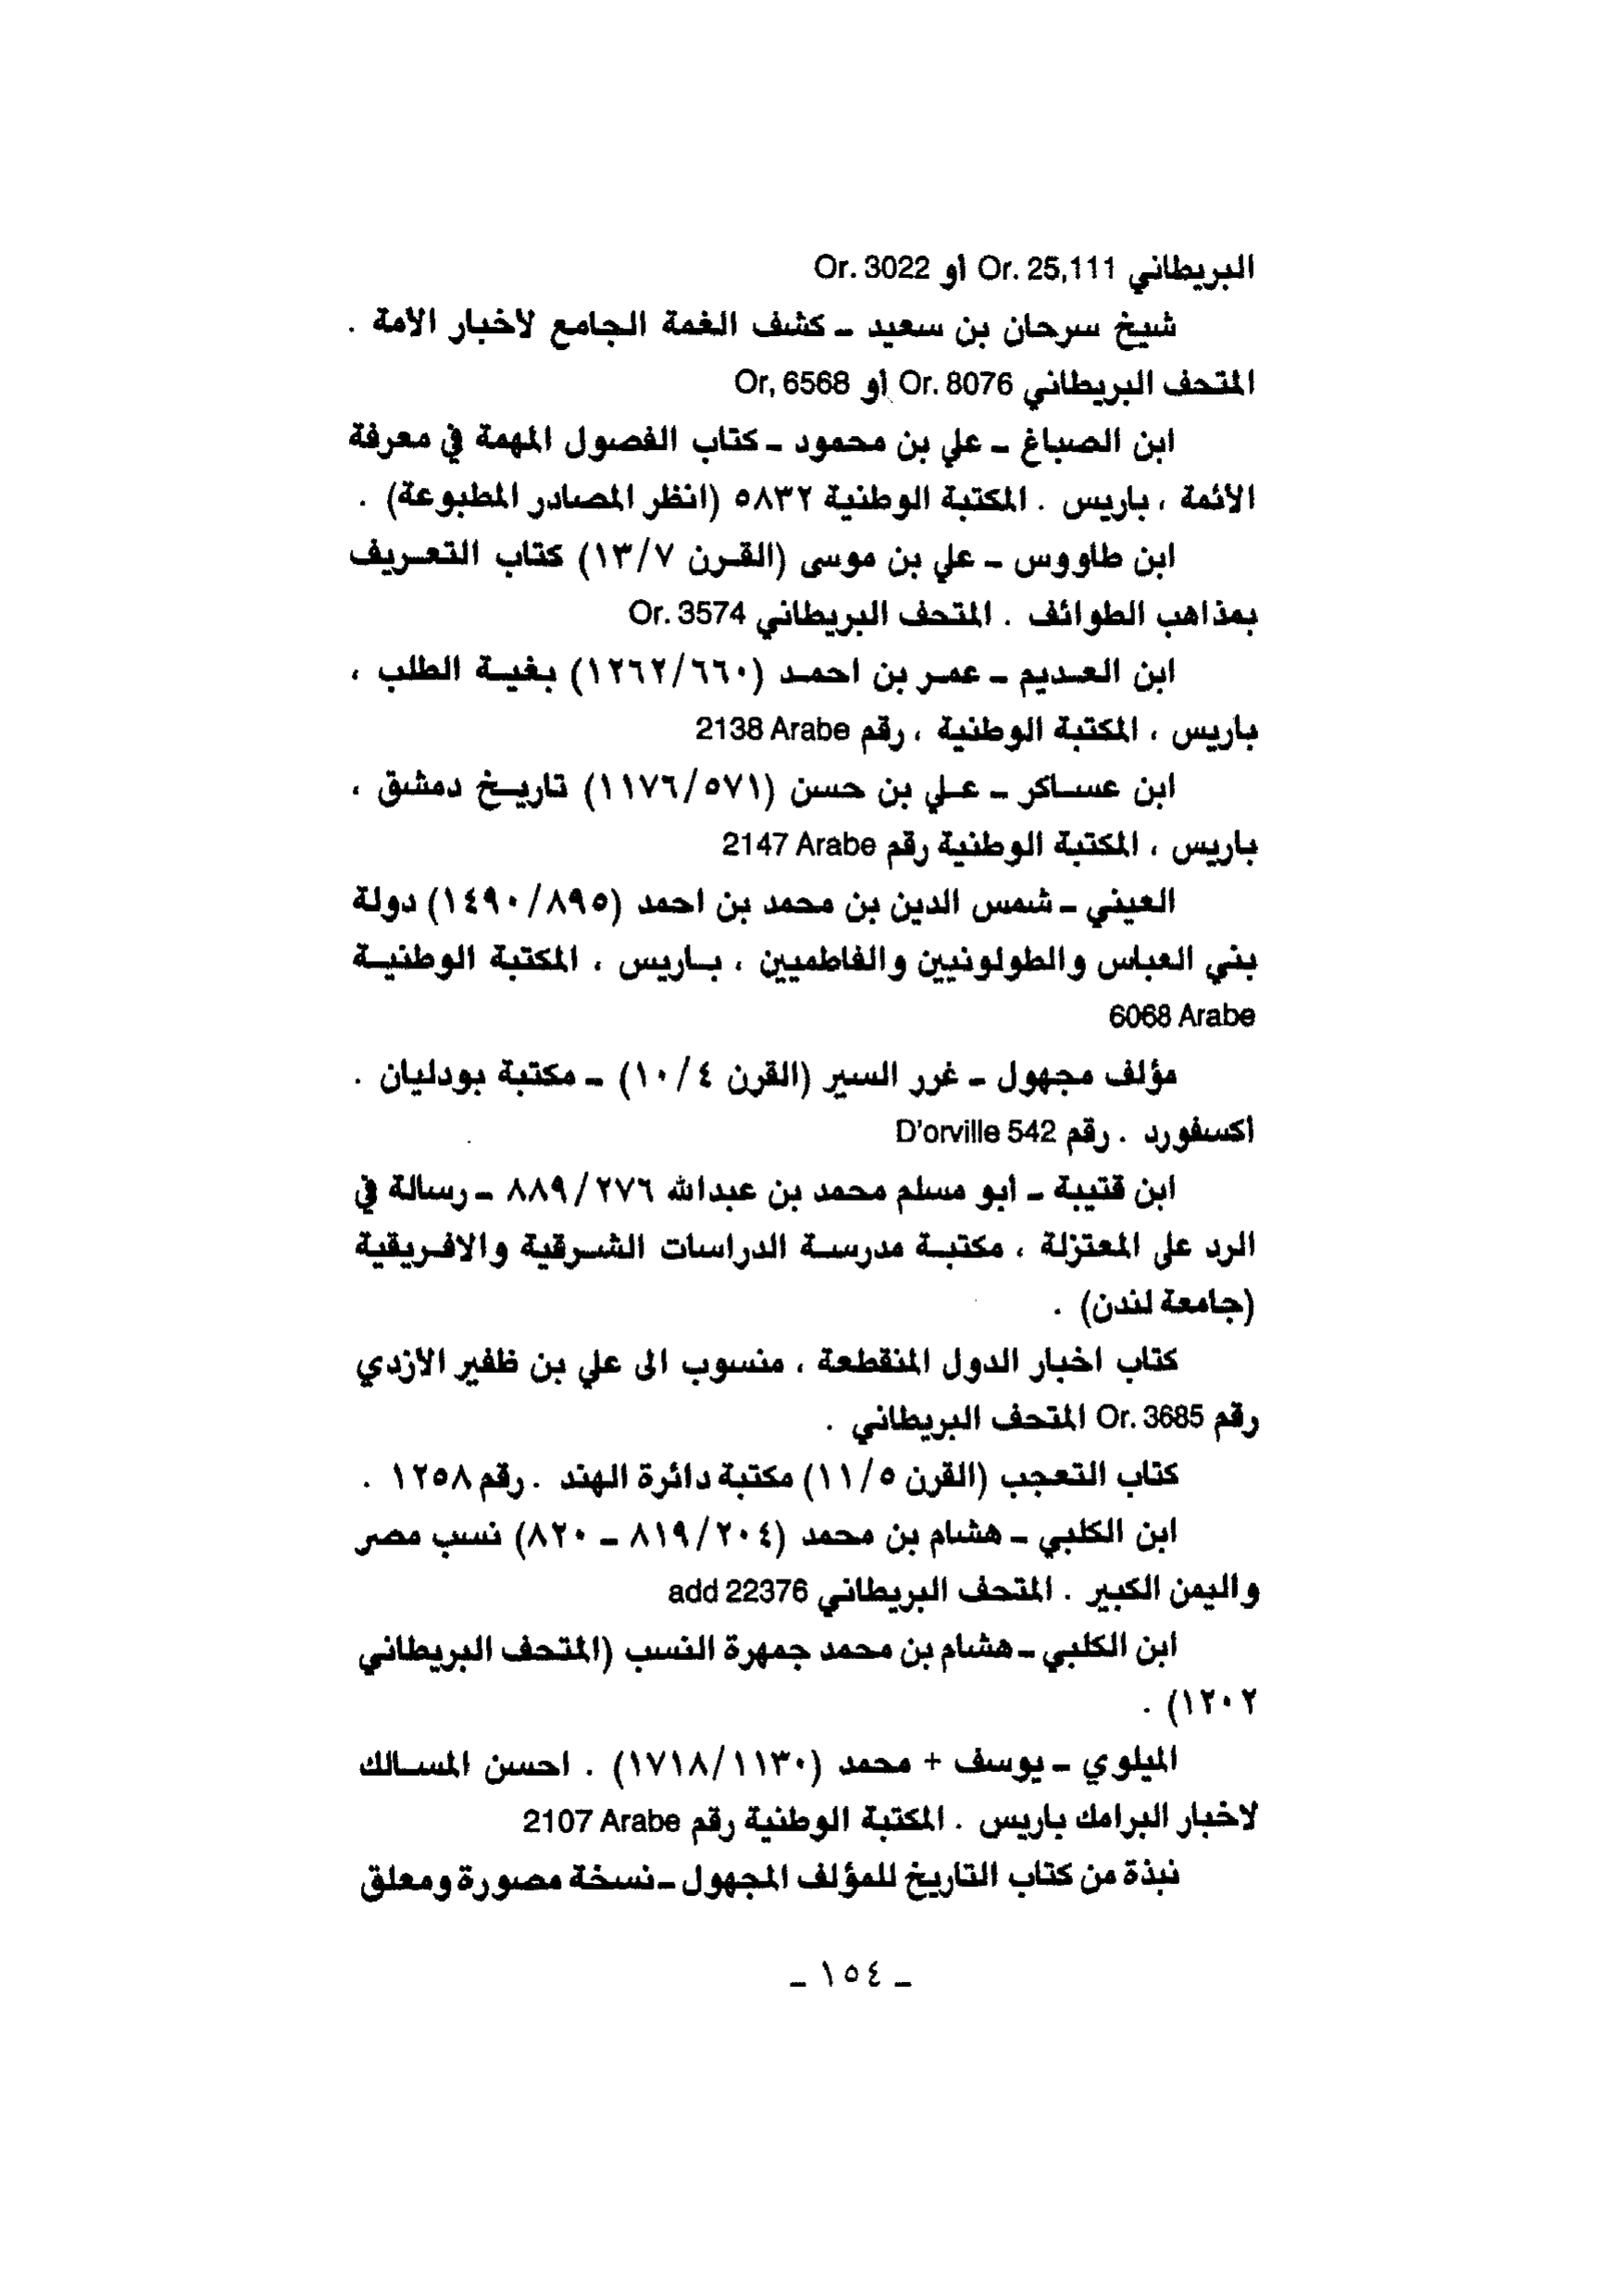 البريطاني Or. 25,111 أو Or. 3022
شيخ سرحان بن سعيد ـ كشف الغمة الجامع لأخبار الأمة .
المتحف البريطاني Or. 8076 أو Or, 6568
ابن الصباغ ـ علي بن محمود ـ كتاب الفصول المهمة في معرفة
الأئمة ، باريس . المكتبة الوطنية ٥٨٣٢ (انظر المصادر المطبوعة) .
ابن طاووس ـ علي بن موسى (القرن ١٣/٧) كتاب التعريف
بمذاهب الطوائف . المتحف البريطاني Or. 3574
ابن العديم ـ عمر بن احمد (١٢٦٢/٦٦٠) بغية الطلب ،
باريس ، المكتبة الوطنية ، رقم 2138 Arabe
ابن عساكر ـ علي بن حسن (١١٧٦/٥٧١) تاريخ دمشق ،
باريس ، المكتبة الوطنية رقم 2147 Arabe
العيني ـ شمس الدين بن محمد بن احمد (١٤٩٠/٨٩٥) دولة
بني العباس والطولونيين والفاطميين ، باريس ، المكتبة الوطنية
6068 Arabe
مؤلف مجهول ـ غرر السير (القرن ١٠/٤) ـ مكتبة بودليان .
أكسفورد . رقم D'orville 542
ابن قتيبة ـ أبو مسلم محمد بن عبدالله ٨٨٩/٢٧٦ ـ رسالة في
الرد على المعتزلة ، مكتبة مدرسة الدراسات الشرقية والافريقية
(جامعة لندن) .
كتاب اخبار الدول المنقطعة ، منسوب الى علي بن ظفير الازدي
رقم Or. 3685 المتحف البريطاني .
كتاب التعجب (القرن ١١/٥) مكتبة دائرة الهند . رقم ١٢٥٨ .
ابن الكلبي ـ هشام بن محمد (٨١٩/٢٠٤ ـ ٨٢٠) نسب مصر
واليمن الكبير . المتحف البريطاني add 22376
ابن الكلبي ـ هشام بن محمد جمهرة النسب (المتحف البريطاني
١٢٠٢) .
الميلوي ـ يوسف + محمد (١٧١٨/١١٣٠) . احسن المسالك
لاخبار البرامك باريس . المكتبة الوطنية رقم 2107 Arabe
نبذة من كتاب التاريخ للمؤلف المجهول ـ نسخة مصورة ومعلق
ـ ١٥٤ ـ